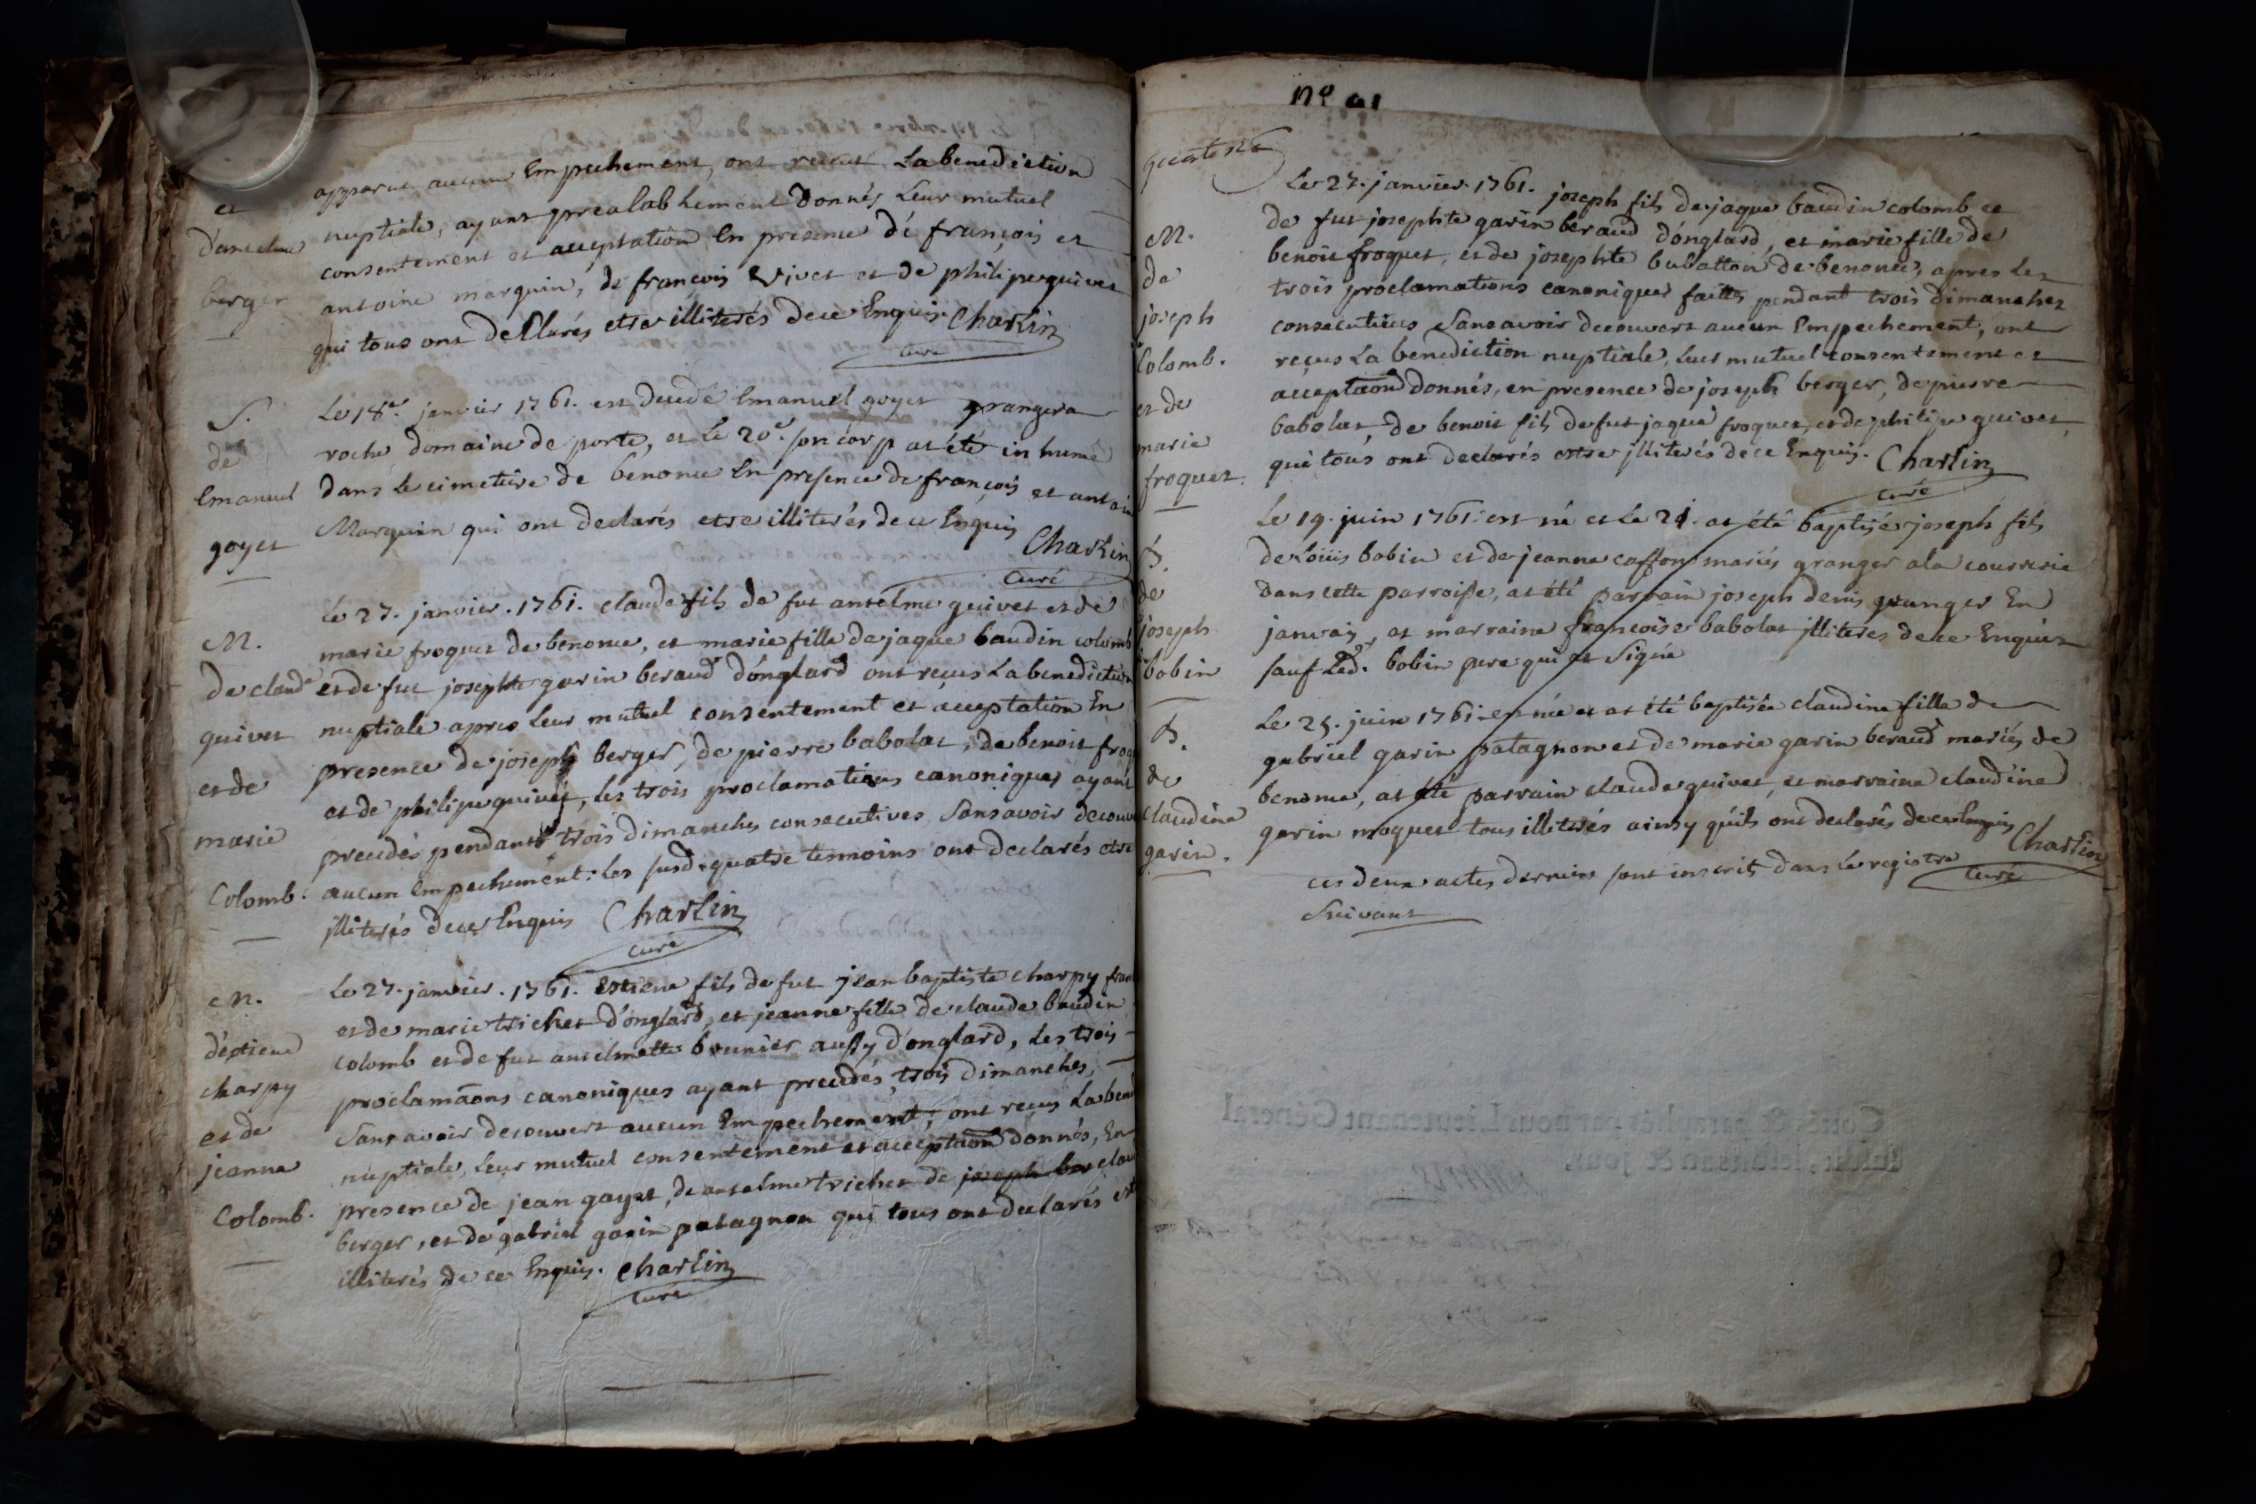 et
d'anselme
berger
apparue aucun Empechement, ont recus La benediction
nuptiale, ayant prealablement donnés Leur mutuel
consentement et acceptation En presence de françois et
antoine marquin, de francois vivet et de philipe quivet
qui tous ont declarés etre illiterés de ce Enquis Charlin
curé
S.
de
Emanuel
goyet
Le 18e janvier 1761. est decedé Emanuel goyet granger a
roche domaine de porte, et le 20e son corp at été inhumé
dans le cimetiere de benonce En presence de françois et antoin
Marquin qui ont declarés etre illiterés de ce Enquis
Charlin
Curé
M.
de claude
quivet
et de
marie
Colomb.
Le 27. janvier. 1761. claude fils de fut anselme quivet et de
marie froquet de benonce, et marie fille de jaque baudin colomb
et de fue josephte garin beraud d'onglard ont reçus La benediction
nuptiale apres Leur mutuel consentement et acceptation En
presence de joseph berger, de pierre babolat, de benoit froq
et de philipe quivet, les trois proclamations canoniques ayant
precedés pendant trois dimanches consecutives Sans avoir decouv
aucun Empechement: Les susd. quatre temoins ont declarés etre
illiterés de ce Enquis Charlin
curé
M.
d'estiene
charpy
et de
jeanne
Colomb.
Le 27. janvier. 1761. Estiene fils de fut jean baptiste charpy
et de marie trichet d'onglard, et jeanne fille de claude baudin
colomb et de fue anselmette brunier aussy d'onglard, Les trois
proclamaons canoniques ayant precedés trois dimanches,
Sans avoir decouvert aucun Empechement, ont reçus La bene
nuptiale, Leur mutuel consentement et acceptaon donnés, En
presence de jean goyet, de anselme trichet de joseph clau
berger, et de gabriel garin patagnon qui tous ont declarés et
illiterés de ce Enquis. Charlin
curé
No 91
M.
de
joseph
Colomb.
et de
marie
froquet.
Le 27. janvier. 1761. joseph fils de jaque baudin colomb et
de fue josephte garin beraud d'onglard, et marie fille de
benoit froquet, et de josephte bubatton de benonce, apres les
trois proclamations canoniques faittes pendant trois dimanches
consecutives Sans avoir decouvert aucun Empechement, ont
reçus La benediction nuptiale, Leur mutuel consentement et
acceptaon donnés, en presence de joseph berger, de pierre
babolat, de benoit fils de fut jaque froquet, et de philipe quivet,
qui tous ont declarés etre illiterés de ce Enquis. Charlin
curé
B.
de
joseph
bobin
Le 19. juin 1761. est né et Le 21. at été baptisé joseph fils
de Loüis bobin et de jeanne casson mariés granger a la courrerie
dans cette parroisse, at été parrain joseph denis granger En
janvais, at marraine françoise babolat illiteres de ce Enquis
sauf Led. bobin pere qui at Signé
B.
de
claudine
garin.
Le 25. juin 1761. est née et at été baptisée claudine fille de
gabriel garin patagnon et de marie garin beraud mariés de
benonce, at été parrain claude quivet, et marraine claudine
garin moquet tous illiterés ainsy qu'ils ont declarés de ce enquis Charlin
Curé
ces deux actes derniers sont inscrits dans le registre
Suivant